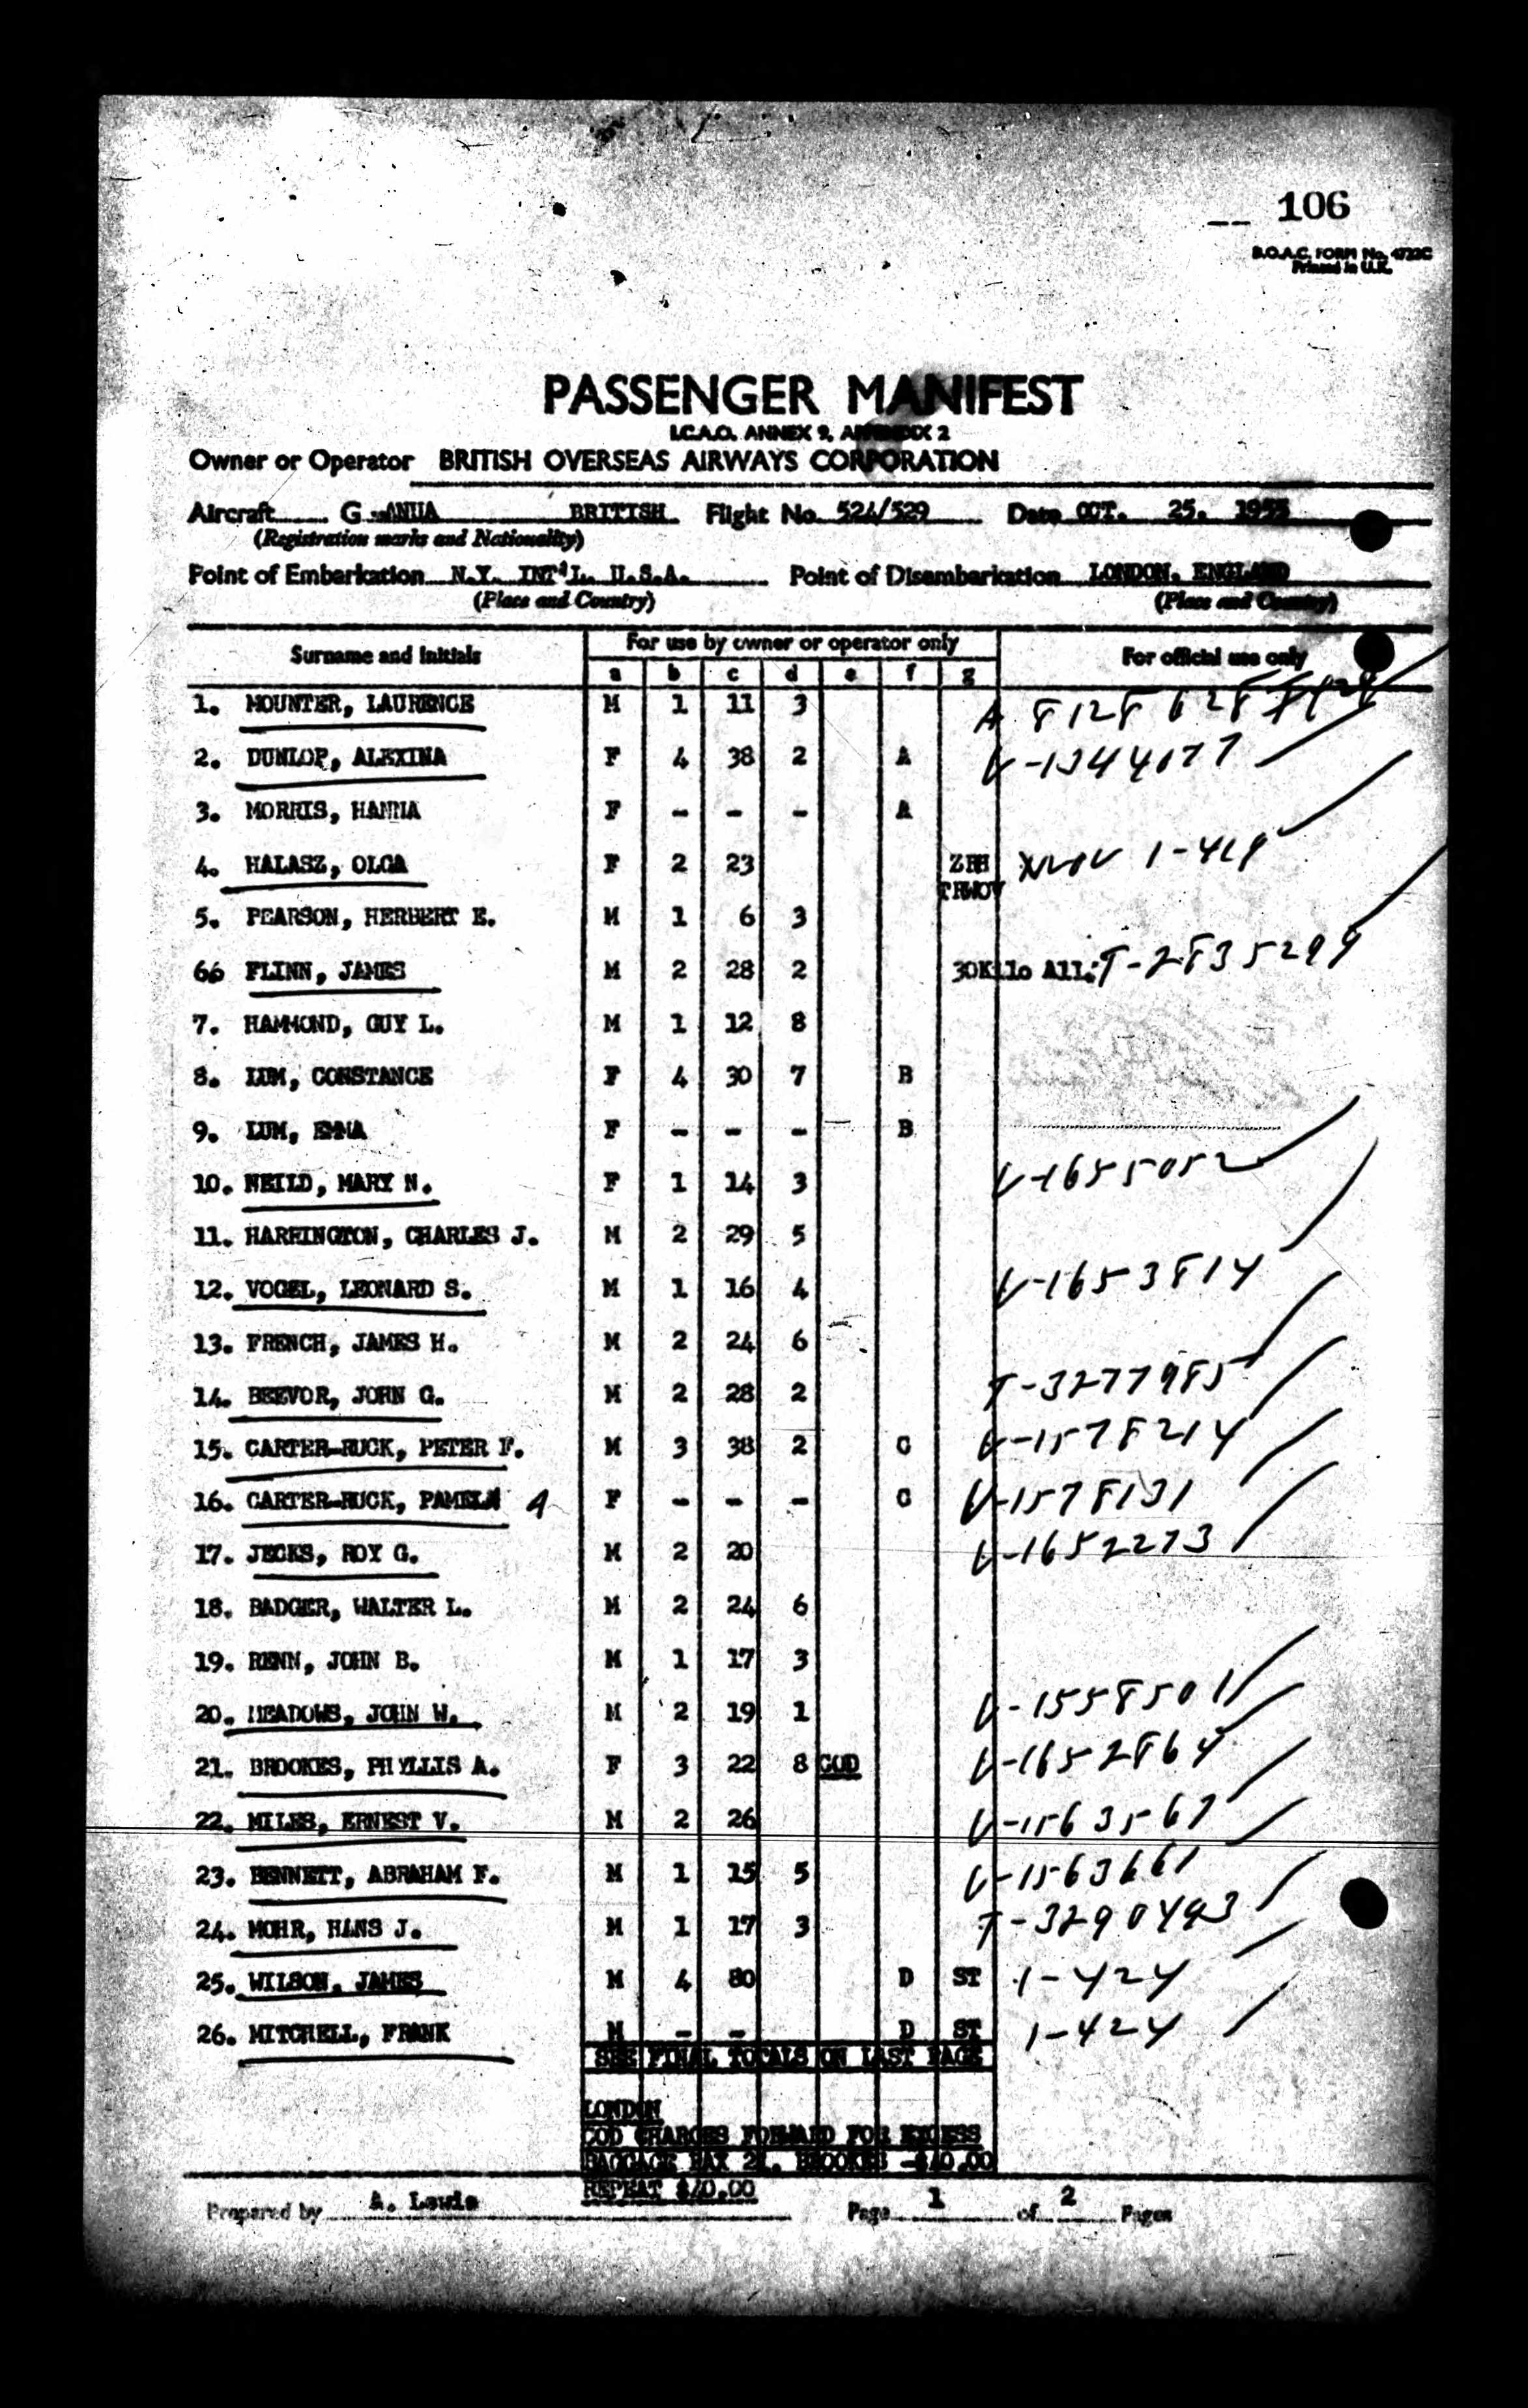 106
B.O.A.C. FORM No. 4722C
Printed in U.K.
PASSENGER MANIFEST
I.C.A.O. ANNEX 9, APPENDIX 2
Owner or Operator BRITISH OVERSEAS AIRWAYS CORPORATION
Aircraft G -ANUA BRITISH Flight No. 524/529 Date OCT. 25. 1955
(Registration marks and Nationality)
Point of Embarkation N.Y. INT'L. U.S.A. Point of Disembarkation LONDON, ENGLAND
(Place and Country) (Place and Country)
Surname and Initials For use by owner or operator only For official use only
a b c d e f g
1. MOUNTER, LAURENCE M 1 11 3 A 8128628
2. DUNLOP, ALEXINA F 4 38 2 A V-1344077
3. MORRIS, HANNA F - - - A
4. HALASZ, OLGA F 2 23 ZRH 1-419
TRWOV
5. PEARSON, HERBERT E. M 1 6 3
66 FLINN, JAMES M 2 28 2 30Kilo All: T-2835299
7. HAMMOND, GUY L. M 1 12 8
8. LUM, CONSTANCE F 4 30 7 B
9. LUM, EMMA F - - - B
10. NEILD, MARY N. F 1 14 3 V-1655052
11. HARRINGTON, CHARLES J. M 2 29 5
12. VOGEL, LEONARD S. M 1 16 4 V-1653814
13. FRENCH, JAMES H. M 2 24 6
14. BEEVOR, JOHN G. M 2 28 2 T-3277985
15. CARTER-RUCK, PETER F. M 3 38 2 C V-1578214
16. CARTER-RUCK, PAMELA A F - - - C V-1578131
17. JECKS, ROY G. M 2 20 V-1652273
18. BADGER, WALTER L. M 2 24 6
19. RENN, JOHN B. M 1 17 3
20. MEADOWS, JOHN W. M 2 19 1 V-1558501
21. BROOKES, PHYLLIS A. F 3 22 8 COD V-1652864
22. MILES, ERNEST V. M 2 26 V-1563567
23. BENNETT, ABRAHAM F. M 1 15 5 V-1563661
24. MOHR, HANS J. M 1 17 3 T-3290493
25. WILSON, JAMES M 4 80 D ST 1-424
26. MITCHELL, FRANK M - - D ST 1-424
SEE FINAL TOTALS ON LAST PAGE
LONDON
COD CHARGES FORWARD FOR EXCESS
BAGGAGE PAX 21. BROOKES -$40.00
REPEAT $40.00
Prepared by A. Lewis Page 1 of 2 Pages